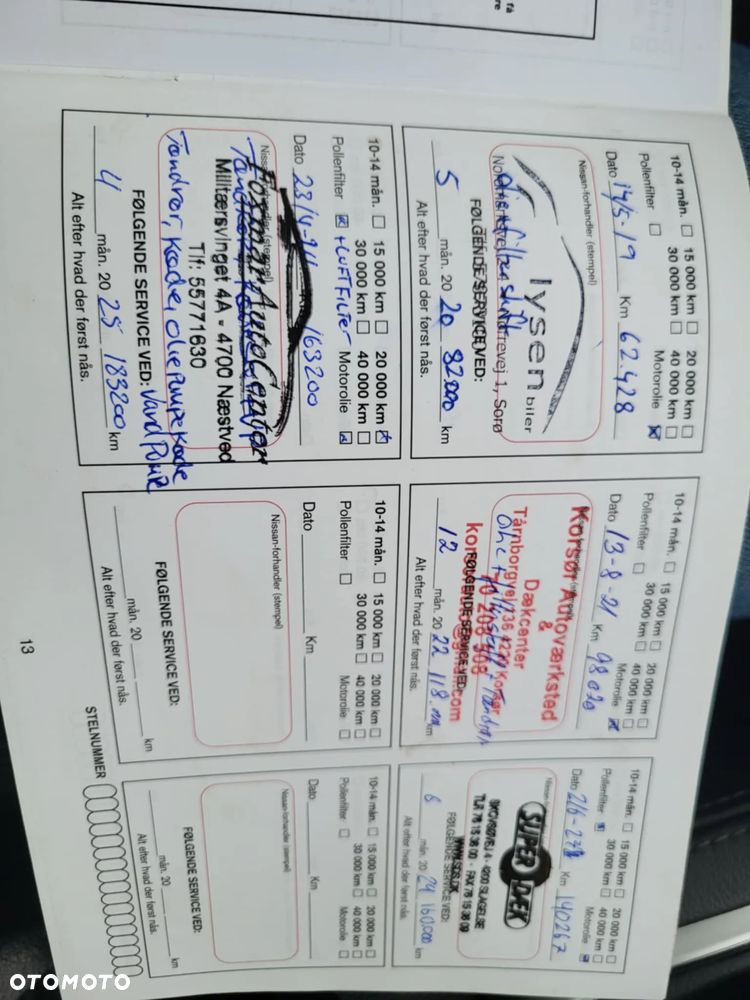 10-14 mån. 15 000 km 20 000 km
30 000 km 40 000 km
Pollenfilter Motorolie
Dato 14/5-19 Km 62.428
Nissan-forhandler (stempel)
lysen
biler
1, Sorø
FØLGENDE SERVICE VED:
5 mån. 20 20 92.000 km
Alt efter hvad der først nås.
10-14 mån. 15 000 km 20 000 km
30 000 km 40 000 km
Pollenfilter Motorolie
Dato 13-8-21 Km 98029
Korsør Autoværksted
&
Dækcenter
Tårnborgvej 236 4220 Korsør
FØLGENDE SERVICE VED:
12 mån. 20 22 118.000 km
Alt efter hvad der først nås.
10-14 mån. 15 000 km 20 000 km
30 000 km 40 000 km
Pollenfilter Motorolie
Dato Km 140267
SUPER DÆK
4 - 4200 SLAGELSE
FØLGENDE SERVICE VED:
6 mån. 20 24 160.000 km
Alt efter hvad der først nås.
10-14 mån. 15 000 km 20 000 km
30 000 km 40 000 km
Pollenfilter +LUFTFilter Motorolie
Dato 163200
Nissan-forhandler (stempel)
AutoCenter
Militærsvinget 4A - 4700 Næstved
Tlf: 55771630
Tandrør, Kæde, olie Pumpe Kæde
FØLGENDE SERVICE VED: Vand PUMP
4 mån. 20 25 183200 km
Alt efter hvad der først nås.
10-14 mån. 15 000 km 20 000 km
30 000 km 40 000 km
Pollenfilter Motorolie
Dato Km
Nissan-forhandler (stempel)
FØLGENDE SERVICE VED:
mån. 20 km
Alt efter hvad der først nås.
10-14 mån. 15 000 km 20 000 km
30 000 km 40 000 km
Pollenfilter Motorolie
Dato Km
Nissan-forhandler (stempel)
FØLGENDE SERVICE VED:
mån. 20 km
Alt efter hvad der først nås.
STELNUMMER
13
OTOMOTO